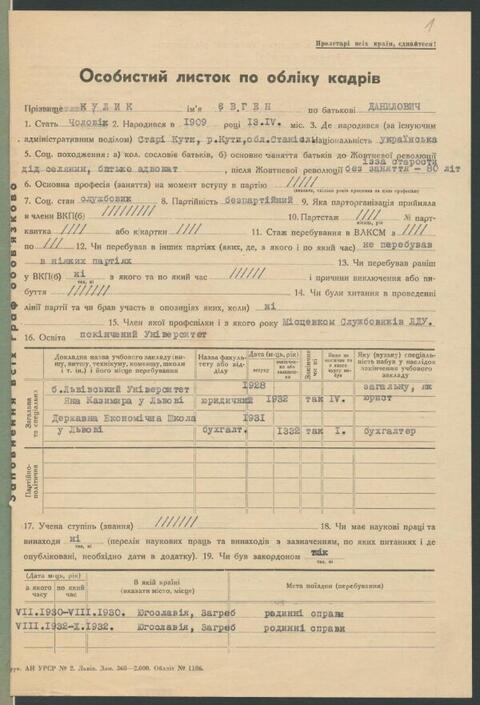 1
Пролетарі всіх країн, єднайтеся!
Особистий листок по обліку кадрів
Прізвище КУЛИК ім'я ЄВГЕН по батькові ДАНИЛОВИЧ
1. Стать Чоловік 2. Народився в 1909 році 13.IV. міс. 3. Де народився (за існуючим
адміністративним поділом) Старі Кути, р.Кути, обл.Станісл. Національність українська
5. Соц. походження: а) кол. сословіє батьків, б) основне заняття батьків до Жовтневої революції
дід селянин, батько адвокат, після Жовтневої революції без заняття - 80 літ
ізза старости
6. Основна професія (заняття) на момент вступу в партію //////
7. Соц. стан службовик 8. Партійність безпартійний 9. Яка парторганізація прийняла
в члени ВКП(б) ////// 10. Партстаж //// № парт-
квитка //// або к/картки //// 11. Стаж перебування в ВЛКСМ з ----
по /// 12. Чи перебував в інших партіях (яких, де, з якого і по який час) не перебував
в ніяких партіях 13. Чи перебував раніш
у ВКП(б) ні з якого та по який час ////// і причини виключення або ви-
так, ні
буття /////// 14. Чи були хитання в проведенні
лінії партії та чи брав участь в опозиціях яких, коли) ні
15. Член якої профспілки і з якого року Місцевком Службовиків ЛДУ.
16. Освіта покінчений Університет
Заповнення всіх граф обов'язково
Докладна назва учбового закладу (ви-
шу, витсу, технікуму, комвишу, школи
і т. ін.) і його місце перебування
Назва факуль-
тету або від-
ділу
Дата (м-ць, рік)
вступу
Яку (вузьку) спеціаль-
ність набув у наслідок
закінчення учбового
закладу
Загальна та спеціальна
б.Львівський Університет 1928 загальну, як
Яна Казимира у Львові юридичний 1932 так IV. юрист
Державна Економічна Школа 1931
у Львові бухгалт. 1332 так I. бухгалтер
Партійно-політична
17. Учена ступінь (звання) /////// 18. Чи має наукові праці та
винаходи ні (перелік наукових праць та винаходів з зазначенням, по яких питаннях і де
так, ні
опубліковані, необхідно дати в додатку). 19. Чи був закордоном так
так, ні
(Дата м-ць, рік)
з якого часу
по який час
В якій країні
(вказати місто, місце)
Мета поїздки (перебування)
VII.1930-VIII.1930. Югославія, Загреб родинні справи
VIII.1932-X.1932. Югославія, Загреб родинні справи
рук. АН УРСР № 2. Львів. Зам. 360—2.000. Обліліт № 1186.